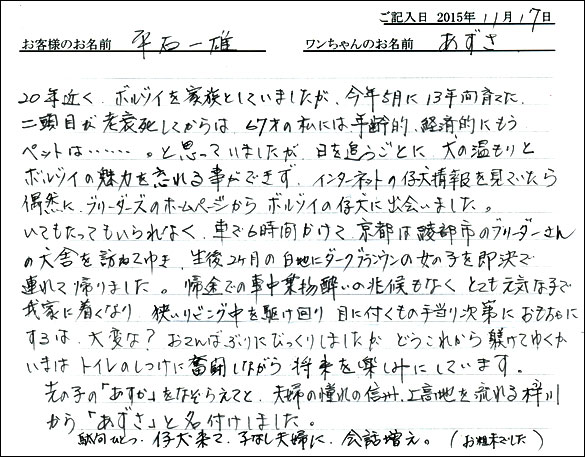 ご記入日 2015年 11月 17日
お客様のお名前 平石一雄 ワンちゃんのお名前 あずさ
20年近く、ボルゾイを家族としていましたが、今年5月に13年間育てた
二頭目が老衰死してからは、67才の私には、年齢的、経済的にもう
ペットは……。と思っていましたが、日を追うごとに、犬の温もりと
ボルゾイの魅力を忘れる事ができず、インターネットの仔犬情報を見ていたら
偶然に、ブリーダーズのホームページからボルゾイの仔犬に出会いました。
いてもたってもいられなく、車で6時間かけて、京都府綾部市のブリーダーさん
の犬舎を訪ねてゆき、生後2ヶ月の白地にダークブラウンの女の子を即決で
連れて帰りました。帰途での車中乗物酔いの兆候もなく、とても元気な子で
我家に着くなり、狭いリビング中を駆け回り、目に付くもの手当り次第におもちゃに
するは、大変な?おてんばぶりにびっくりしましたが、どうこれから躾けてゆくか
いまはトイレのしつけに奮闘しながら、将来を楽しみにしています。
先の子の「あすか」をなぞらえてと、夫婦の憧れの信州、上高地を流れる梓川
から「あずさ」と名付けしました。
駄句ひとつ、仔犬来て、子なし夫婦に、会話増え。(お粗末でした)